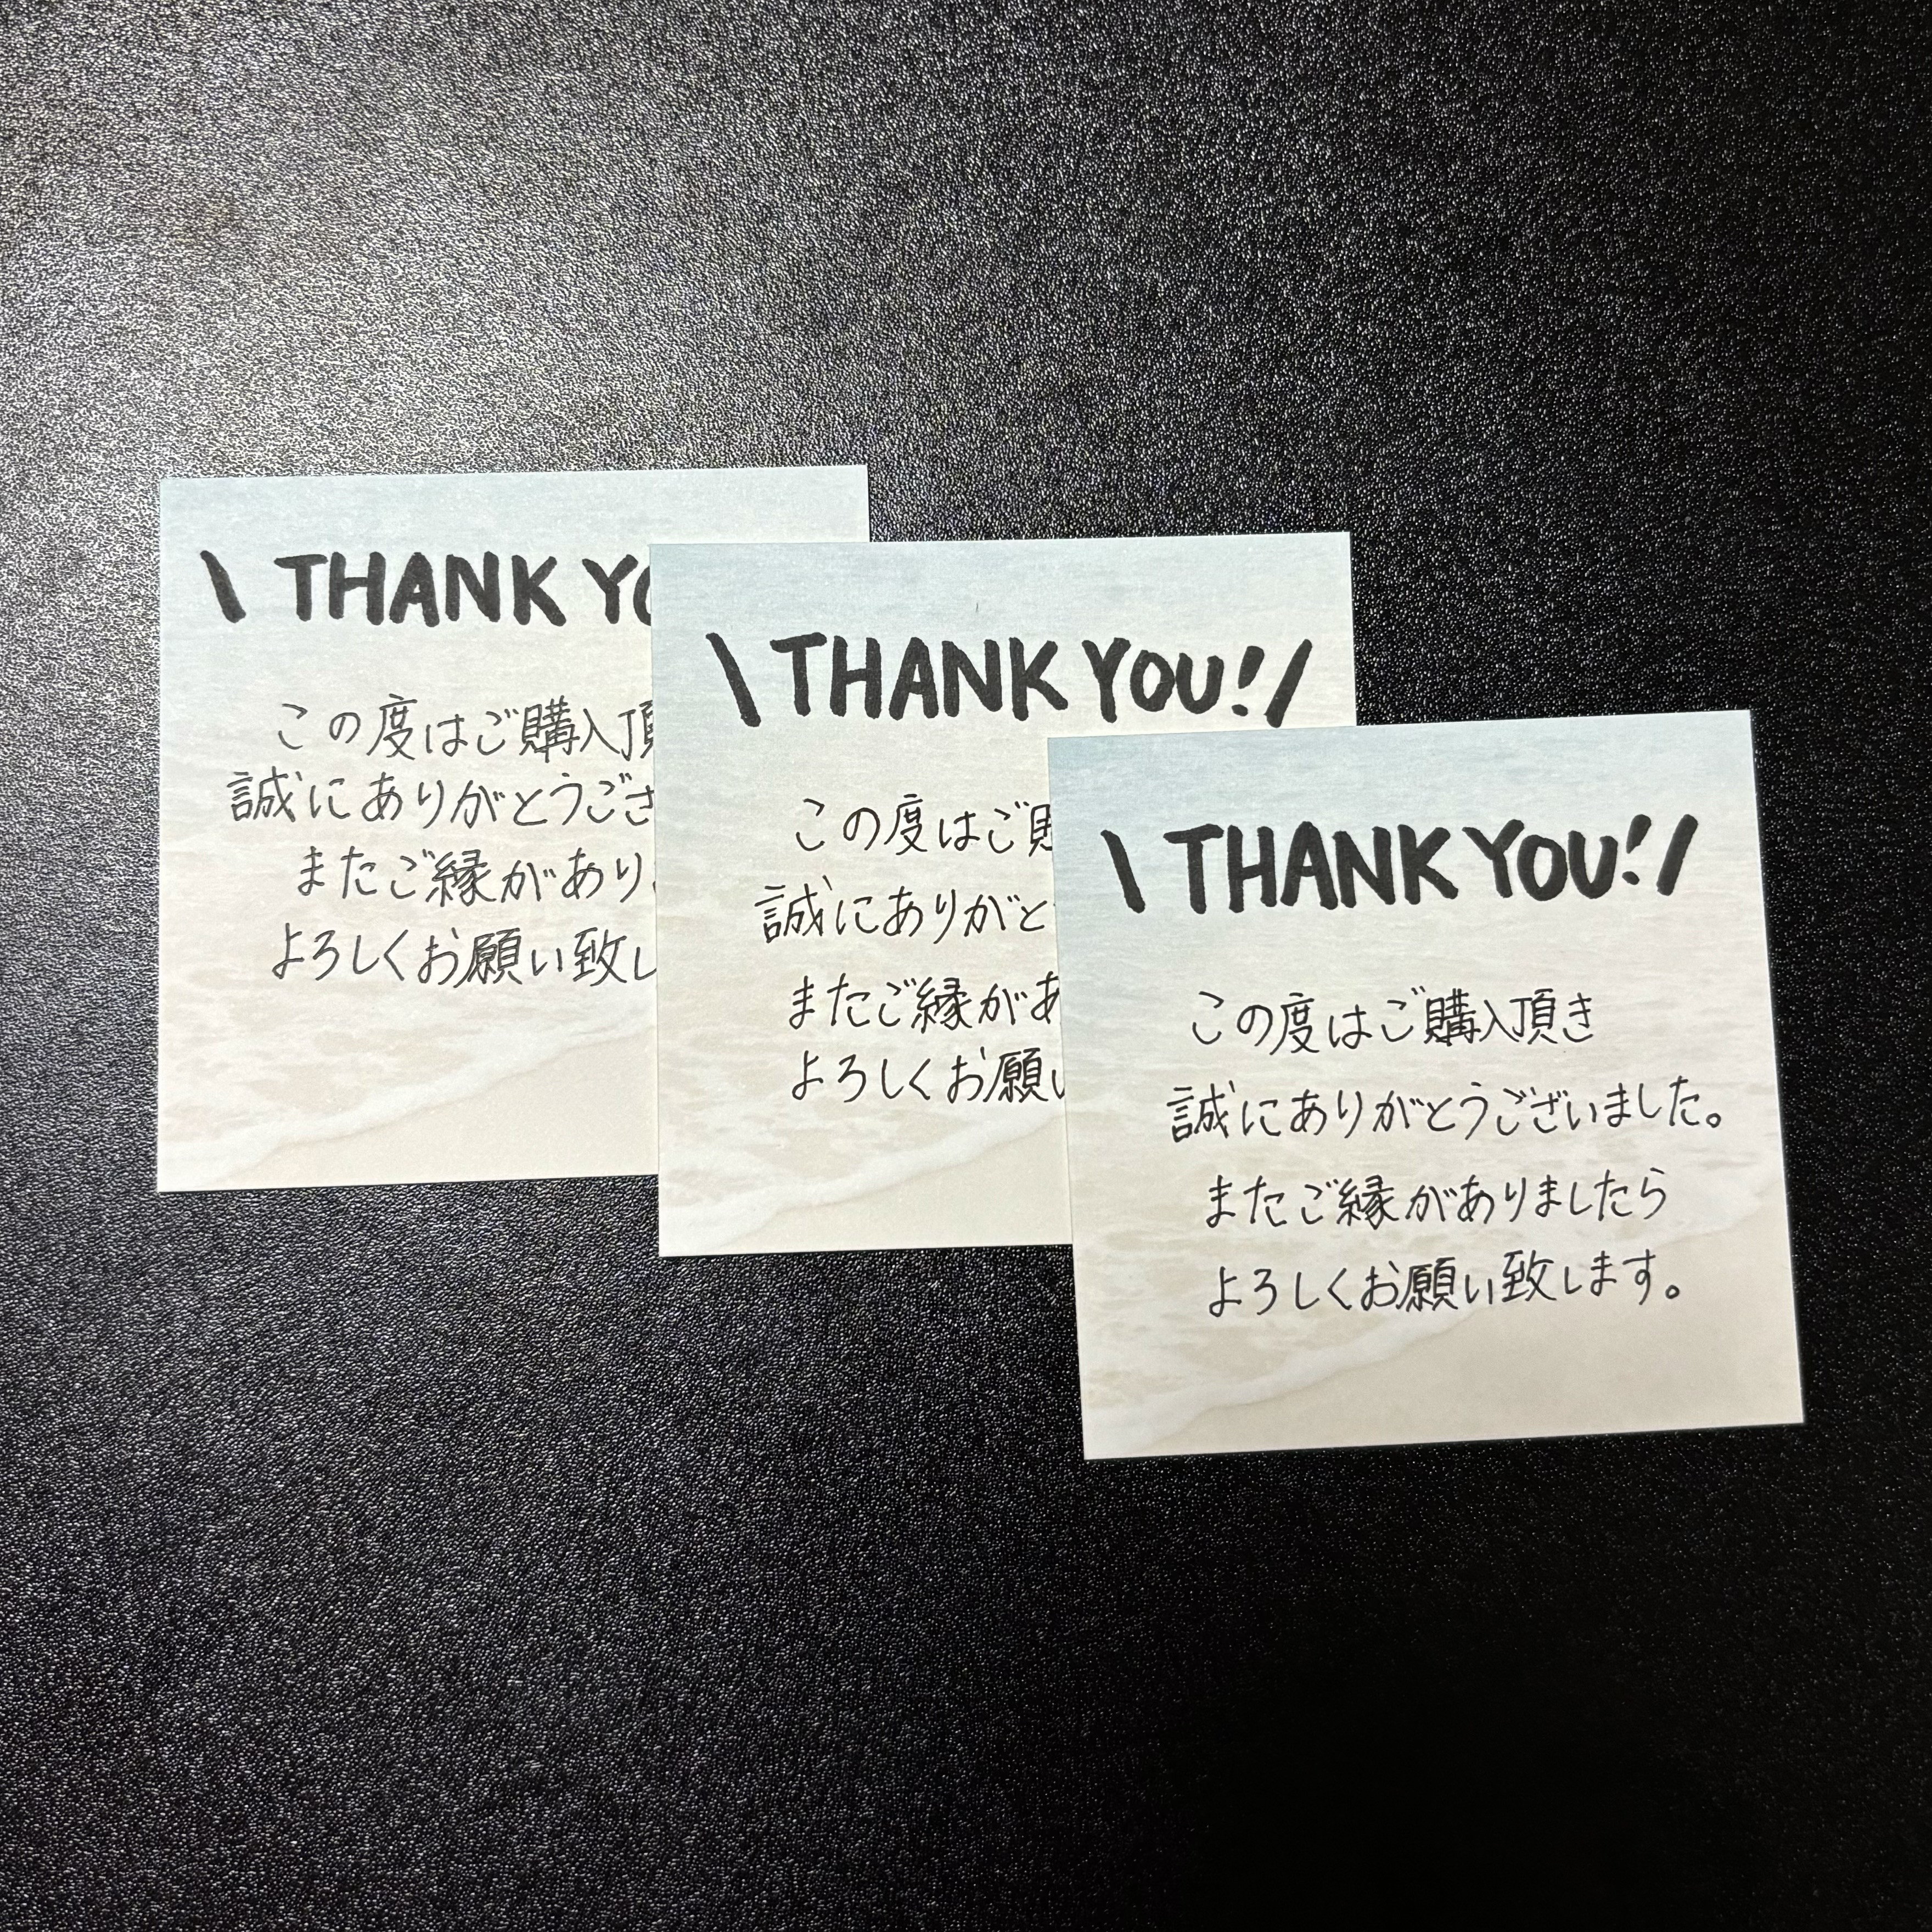 \ THANK YO
この度はご購入頂
誠にありがとうござ
またご縁があり
よろしくお願い致し
\ THANK YOU! /
この度はご
誠にありがと
またご縁があ
よろしくお願い
\ THANK YOU! /
この度はご購入頂き
誠にありがとうございました。
またご縁がありましたら
よろしくお願い致します。